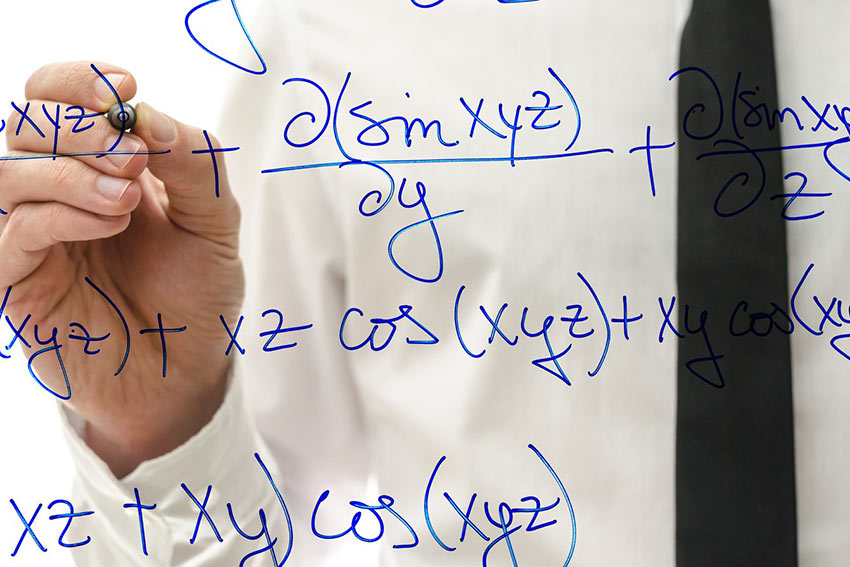 xyz) + ∂(sin xyz)/∂y + ∂(sin xy
(xyz) + xz cos (xyz) + xy cos (xy
xz + xy) cos (xyz)